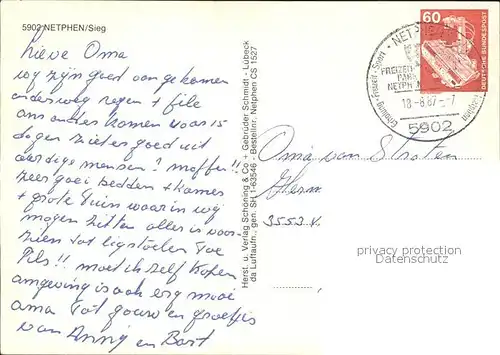 5902 NETPHEN/Sieg
Lieve Oma
wij zijn goed aangekomen
onderweg regen + file
ons onder komen voor 15
dagen ziet er goed uit
aardige mensen! moffen!!
zeer goei bedden + kamer
+ grote tuin waar in wij
mogen zitten alles is voor
zien tot ligstoelen toe
Pils!! moet ik zelf kopen
omgeving is ook erg mooi
oma tot gouw en groetjes
van Anny en Bart
Herst. u. Verlag Schöning & Co + Gebrüder Schmidt - Lübeck
da Luftaufn., gen. SH 1-63546 + Bestellnr. Netphen CS 1527
60
DEUTSCHE BUNDESPOST
NETPHEN
FREIZEIT
PARK
NETPH
Erholung · Freizeit · Sport
18.-8.87-7
5902
Oma van Straten
3553 V.
privacy protection
Datenschutz